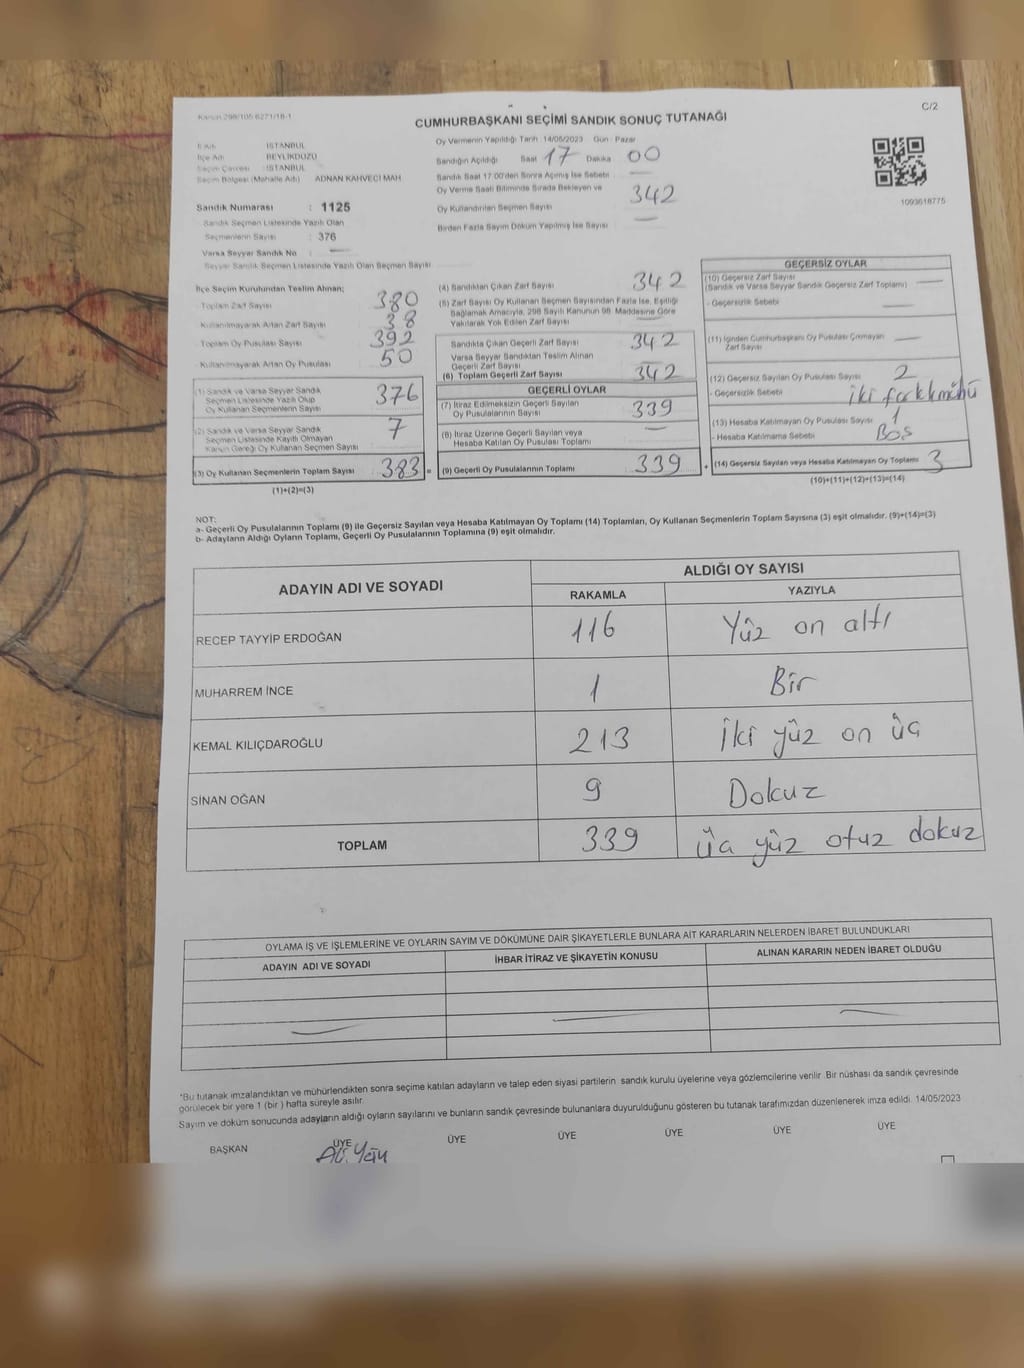 C/2
CUMHURBAŞKANI SEÇİMİ SANDIK SONUÇ TUTANAĞI
İSTANBUL
İlçe Adı BEYLİKDÜZÜ
Seçim Çevresi : İSTANBUL
Seçim Bölgesi (Mahalle Adı) ADNAN KAHVECİ MAH
Sandık Numarası : 1125
Sandık Seçmen Listesinde Yazılı Olan
Seçmenlerin Sayısı : 376
Varsa Seyyar Sandık No :
Seyyar Sandık Seçmen Listesinde Yazılı Olan Seçmen Sayısı
Oy Vermenin Yapıldığı Tarih 14/05/2023 Gün Pazar
Sandığın Açıldığı Saat 17 Dakika 00
Sandık Saat 17:00'den Sonra Açılmış İse Sebebi
Oy Verme Saati Bitiminde Sırada Bekleyen ve
Oy Kullandırılan Seçmen Sayısı 342
Birden Fazla Sayım Döküm Yapılmış İse Sayısı
1093618775
İlçe Seçim Kurulundan Teslim Alınan;
Toplam Zarf Sayısı 380
Kullanılmayarak Artan Zarf Sayısı 38
Toplam Oy Pusulası Sayısı 392
Kullanılmayarak Artan Oy Pusulası 50
(1) Sandık ve Varsa Seyyar Sandık
Seçmen Listesinde Yazılı Olup
Oy Kullanan Seçmenlerin Sayısı 376
(2) Sandık ve Varsa Seyyar Sandık
Seçmen Listesinde Kayıtlı Olmayan
Kanun Gereği Oy Kullanan Seçmen Sayısı 7
(3) Oy Kullanan Seçmenlerin Toplam Sayısı 383 =
(1)+(2)=(3)
(4) Sandıktan Çıkan Zarf Sayısı 342
(5) Zarf Sayısı Oy Kullanan Seçmen Sayısından Fazla İse, Eşitliği
Bağlamak Amacıyla, 298 Sayılı Kanunun 98. Maddesine Göre
Yakılarak Yok Edilen Zarf Sayısı
Sandıkta Çıkan Geçerli Zarf Sayısı 342
Varsa Seyyar Sandıktan Teslim Alınan
Geçerli Zarf Sayısı
(6) Toplam Geçerli Zarf Sayısı 342
GEÇERLİ OYLAR
(7) İtiraz Edilmeksizin Geçerli Sayılan
Oy Pusulalarının Sayısı 339
(8) İtiraz Üzerine Geçerli Sayılan veya
Hesaba Katılan Oy Pusulası Toplamı
(9) Geçerli Oy Pusulalarının Toplamı 339 +
GEÇERSİZ OYLAR
(10) Geçersiz Zarf Sayısı
(Sandık ve Varsa Seyyar Sandık Geçersiz Zarf Toplamı)
- Geçersizlik Sebebi
(11) İçinden Cumhurbaşkanı Oy Pusulası Çıkmayan
Zarf Sayısı
(12) Geçersiz Sayılan Oy Pusulası Sayısı 2
- Geçersizlik Sebebi iki farklı mühü
(13) Hesaba Katılmayan Oy Pusulası Sayısı 1
- Hesaba Katılmama Sebebi Boş
(14) Geçersiz Sayılan veya Hesaba Katılmayan Oy Toplamı 3
(10)+(11)+(12)+(13)=(14)
NOT:
a- Geçerli Oy Pusulalarının Toplamı (9) ile Geçersiz Sayılan veya Hesaba Katılmayan Oy Toplamı (14) Toplamları, Oy Kullanan Seçmenlerin Toplam Sayısına (3) eşit olmalıdır. (9)+(14)=(3)
b- Adayların Aldığı Oyların Toplamı, Geçerli Oy Pusulalarının Toplamına (9) eşit olmalıdır.
ADAYIN ADI VE SOYADI ALDIĞI OY SAYISI
RAKAMLA YAZIYLA
RECEP TAYYİP ERDOĞAN 116 Yüz on altı
MUHARREM İNCE 1 Bir
KEMAL KILIÇDAROĞLU 213 İki yüz on üç
SİNAN OĞAN 9 Dokuz
TOPLAM 339 üç yüz otuz dokuz
OYLAMA İŞ VE İŞLEMLERİNE VE OYLARIN SAYIM VE DÖKÜMÜNE DAİR ŞİKAYETLERLE BUNLARA AİT KARARLARIN NELERDEN İBARET BULUNDUKLARI
ADAYIN ADI VE SOYADI İHBAR İTİRAZ VE ŞİKAYETİN KONUSU ALINAN KARARIN NEDEN İBARET OLDUĞU
*Bu tutanak imzalandıktan ve mühürlendikten sonra seçime katılan adayların ve talep eden siyasi partilerin sandık kurulu üyelerine veya gözlemcilerine verilir. Bir nüshası da sandık çevresinde
görülecek bir yere 1 (bir ) hafta süreyle asılır.
Sayım ve döküm sonucunda adayların aldığı oyların sayılarını ve bunların sandık çevresinde bulunanlara duyurulduğunu gösteren bu tutanak tarafımızdan düzenlenerek imza edildi. 14/05/2023
BAŞKAN ÜYE ÜYE ÜYE ÜYE ÜYE ÜYE